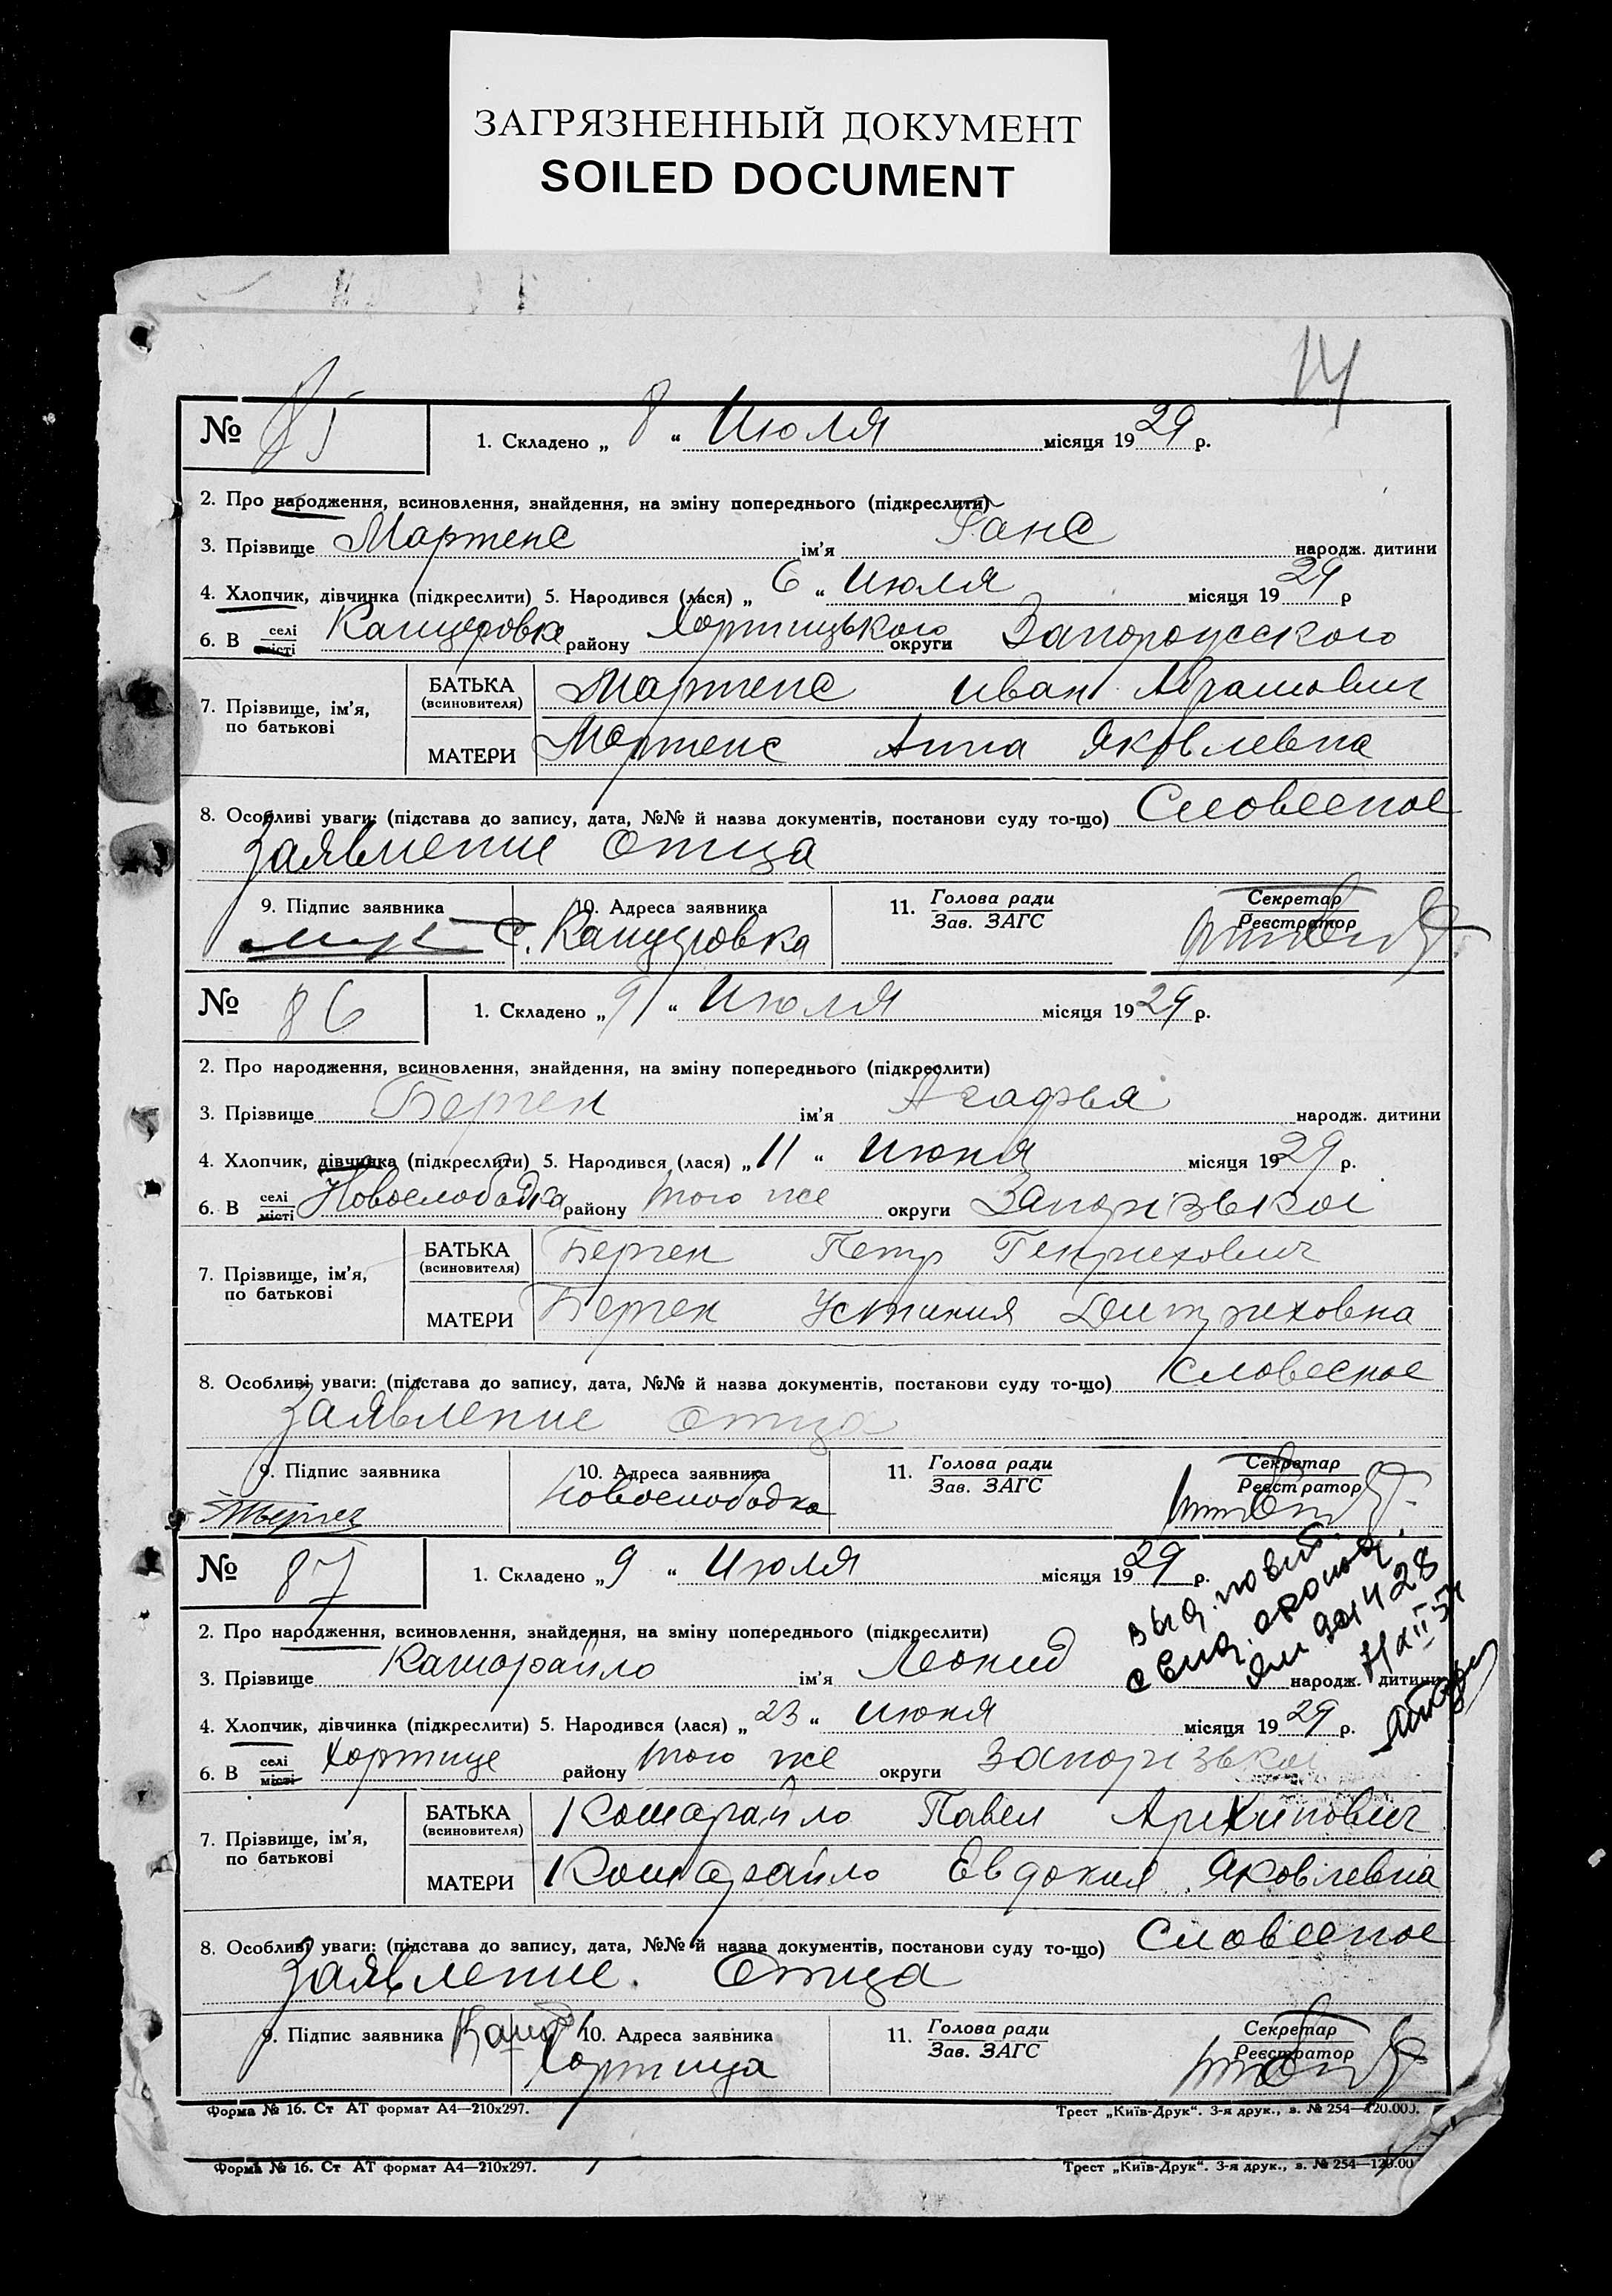 ЗАГРЯЗНЕННЫЙ ДОКУМЕНТ
SOILED DOCUMENT
14
№ 85
1. Складено „ 8 “ Июля місяця 1929 р.
2. Про народження, всиновлення, знайдення, на зміну попереднього (підкреслити)
3. Прізвище Мартенс ім'я Ганс народж. дитини
4. Хлопчик, дівчинка (підкреслити) 5. Народився (лася) „ 6 “ Июля місяця 1929 р
6. В селі місті району Хортицького округи Запорожского
7. Прізвище, ім'я, по батькові
БАТЬКА (всиновителя) Мартенс Иван Абрамович
МАТЕРИ Мартенс Анна Яковлевна
8. Особливі уваги: (підстава до запису, дата, №№ й назва документів, постанови суду то-що) Словесное
Заявление Отца
9. Підпис заявника 10. Адреса заявника 11. Голова ради Зав. ЗАГС Секретар Реєстратор
с.
№ 86
1. Складено „ 9 “ Июля місяця 1929 р.
2. Про народження, всиновлення, знайдення, на зміну попереднього (підкреслити)
3. Прізвище Берген ім'я Агафья народж. дитини
4. Хлопчик, дівчинка (підкреслити) 5. Народився (лася) „ 11 “ Июня місяця 1929 р.
6. В селі місті Новослободка району того же округи Запорізької
7. Прізвище, ім'я, по батькові
БАТЬКА (всиновителя) Берген Петр Генрихович
МАТЕРИ Берген Устиния Дитриховна
8. Особливі уваги: (підстава до запису, дата, №№ й назва документів, постанови суду то-що) Словесное
Заявление отца
9. Підпис заявника 10. Адреса заявника 11. Голова ради Зав. ЗАГС Секретар Реєстратор
Новослободка
№ 87
1. Складено „ 9 “ Июля місяця 1929 р.
2. Про народження, всиновлення, знайдення, на зміну попереднього (підкреслити)
3. Прізвище ім'я Леонид народж. дитини
4. Хлопчик, дівчинка (підкреслити) 5. Народився (лася) „ 23 “ Июня місяця 1929 р.
6. В селі місті Хортице району того же округи Запорізької
7. Прізвище, ім'я, по батькові
БАТЬКА (всиновителя) Павел Архипович
МАТЕРИ Евдокия Яковлевна
8. Особливі уваги: (підстава до запису, дата, №№ й назва документів, постанови суду то-що) Словесное
Заявление. Отца
9. Підпис заявника 10. Адреса заявника 11. Голова ради Зав. ЗАГС Секретар Реєстратор
Хортица
Форма № 16. Ст АТ формат А4—210х297. Трест „Київ-Друк“. 3-я друк., з. № 254—120.000.
Форма № 16. Ст АТ формат А4—210х297. Трест „Київ-Друк“. 3-я друк., з. № 254—120.00